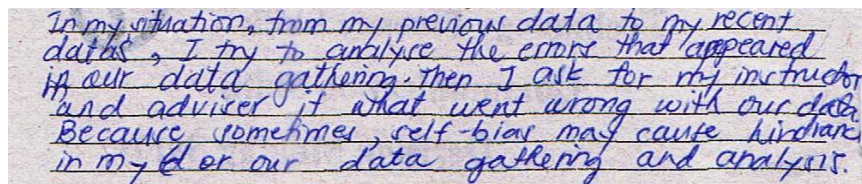 In my situation, from my previous data to my recent
datas, I try to analyse the errors that appeared
in our data gathering. Then I ask for my instructor
and adviser if what went wrong with our data.
Because sometimes, self-bias may cause hindranc
in my or our data gathering and analysis.